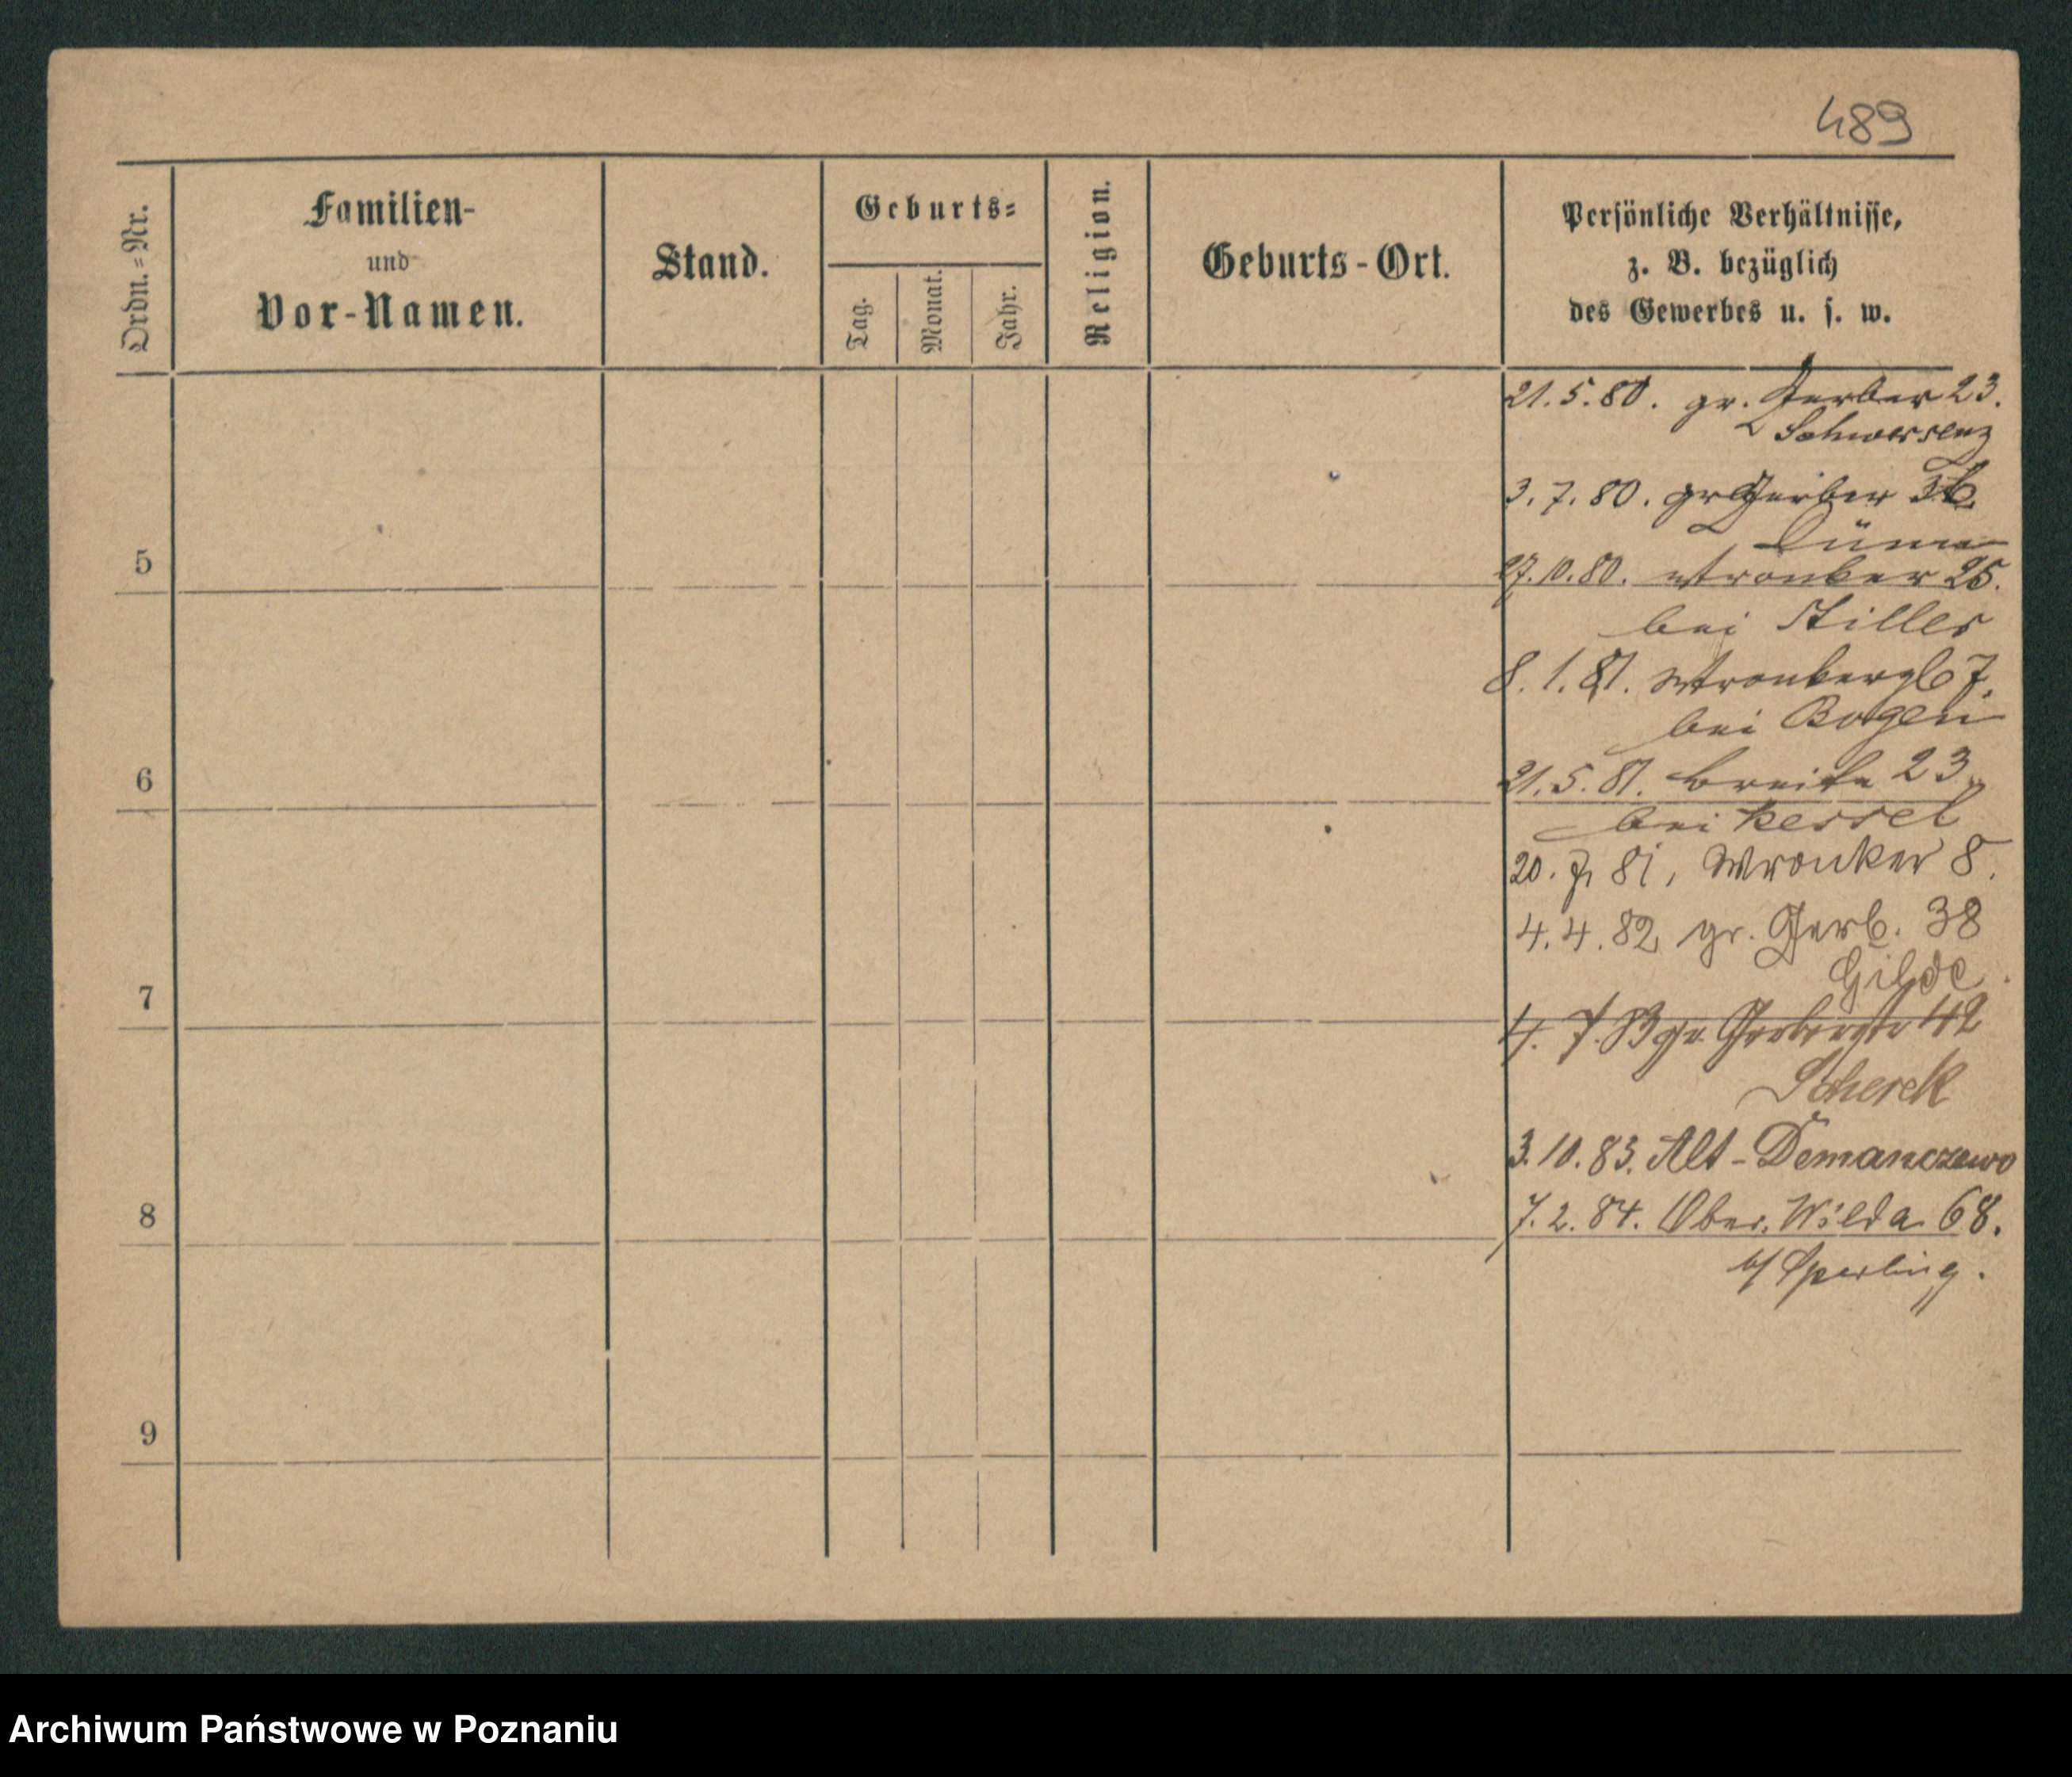 489
Ordn.-Nr.
Familien-
und
Vor-Namen.
Stand.
Geburts-
Tag.
Monat.
Jahr.
Religion.
Geburts-Ort.
Persönliche Verhältnisse,
z. B. bezüglich
des Gewerbes u. s. w.
21.5.80. gr. Gerber 23.
Schwersenz
3.7.80. gr Gerber
5
27.10.80. Wronker 25.
bei Stiller
8.1.81. 7.
bei
6
21.5.81. Breite 23
bei Kessel
20. 7. 81, Wronker 8.
4.4.82 gr. Gerb. 38
Gilde
7
4. 7. 83 gr. Gerberstr 42
Scherek
3.10.83. Alt-Demanczewo
8
7.2.84. Ober. Wilda 68.
b/ Sperling.
9
Archiwum Państwowe w Poznaniu